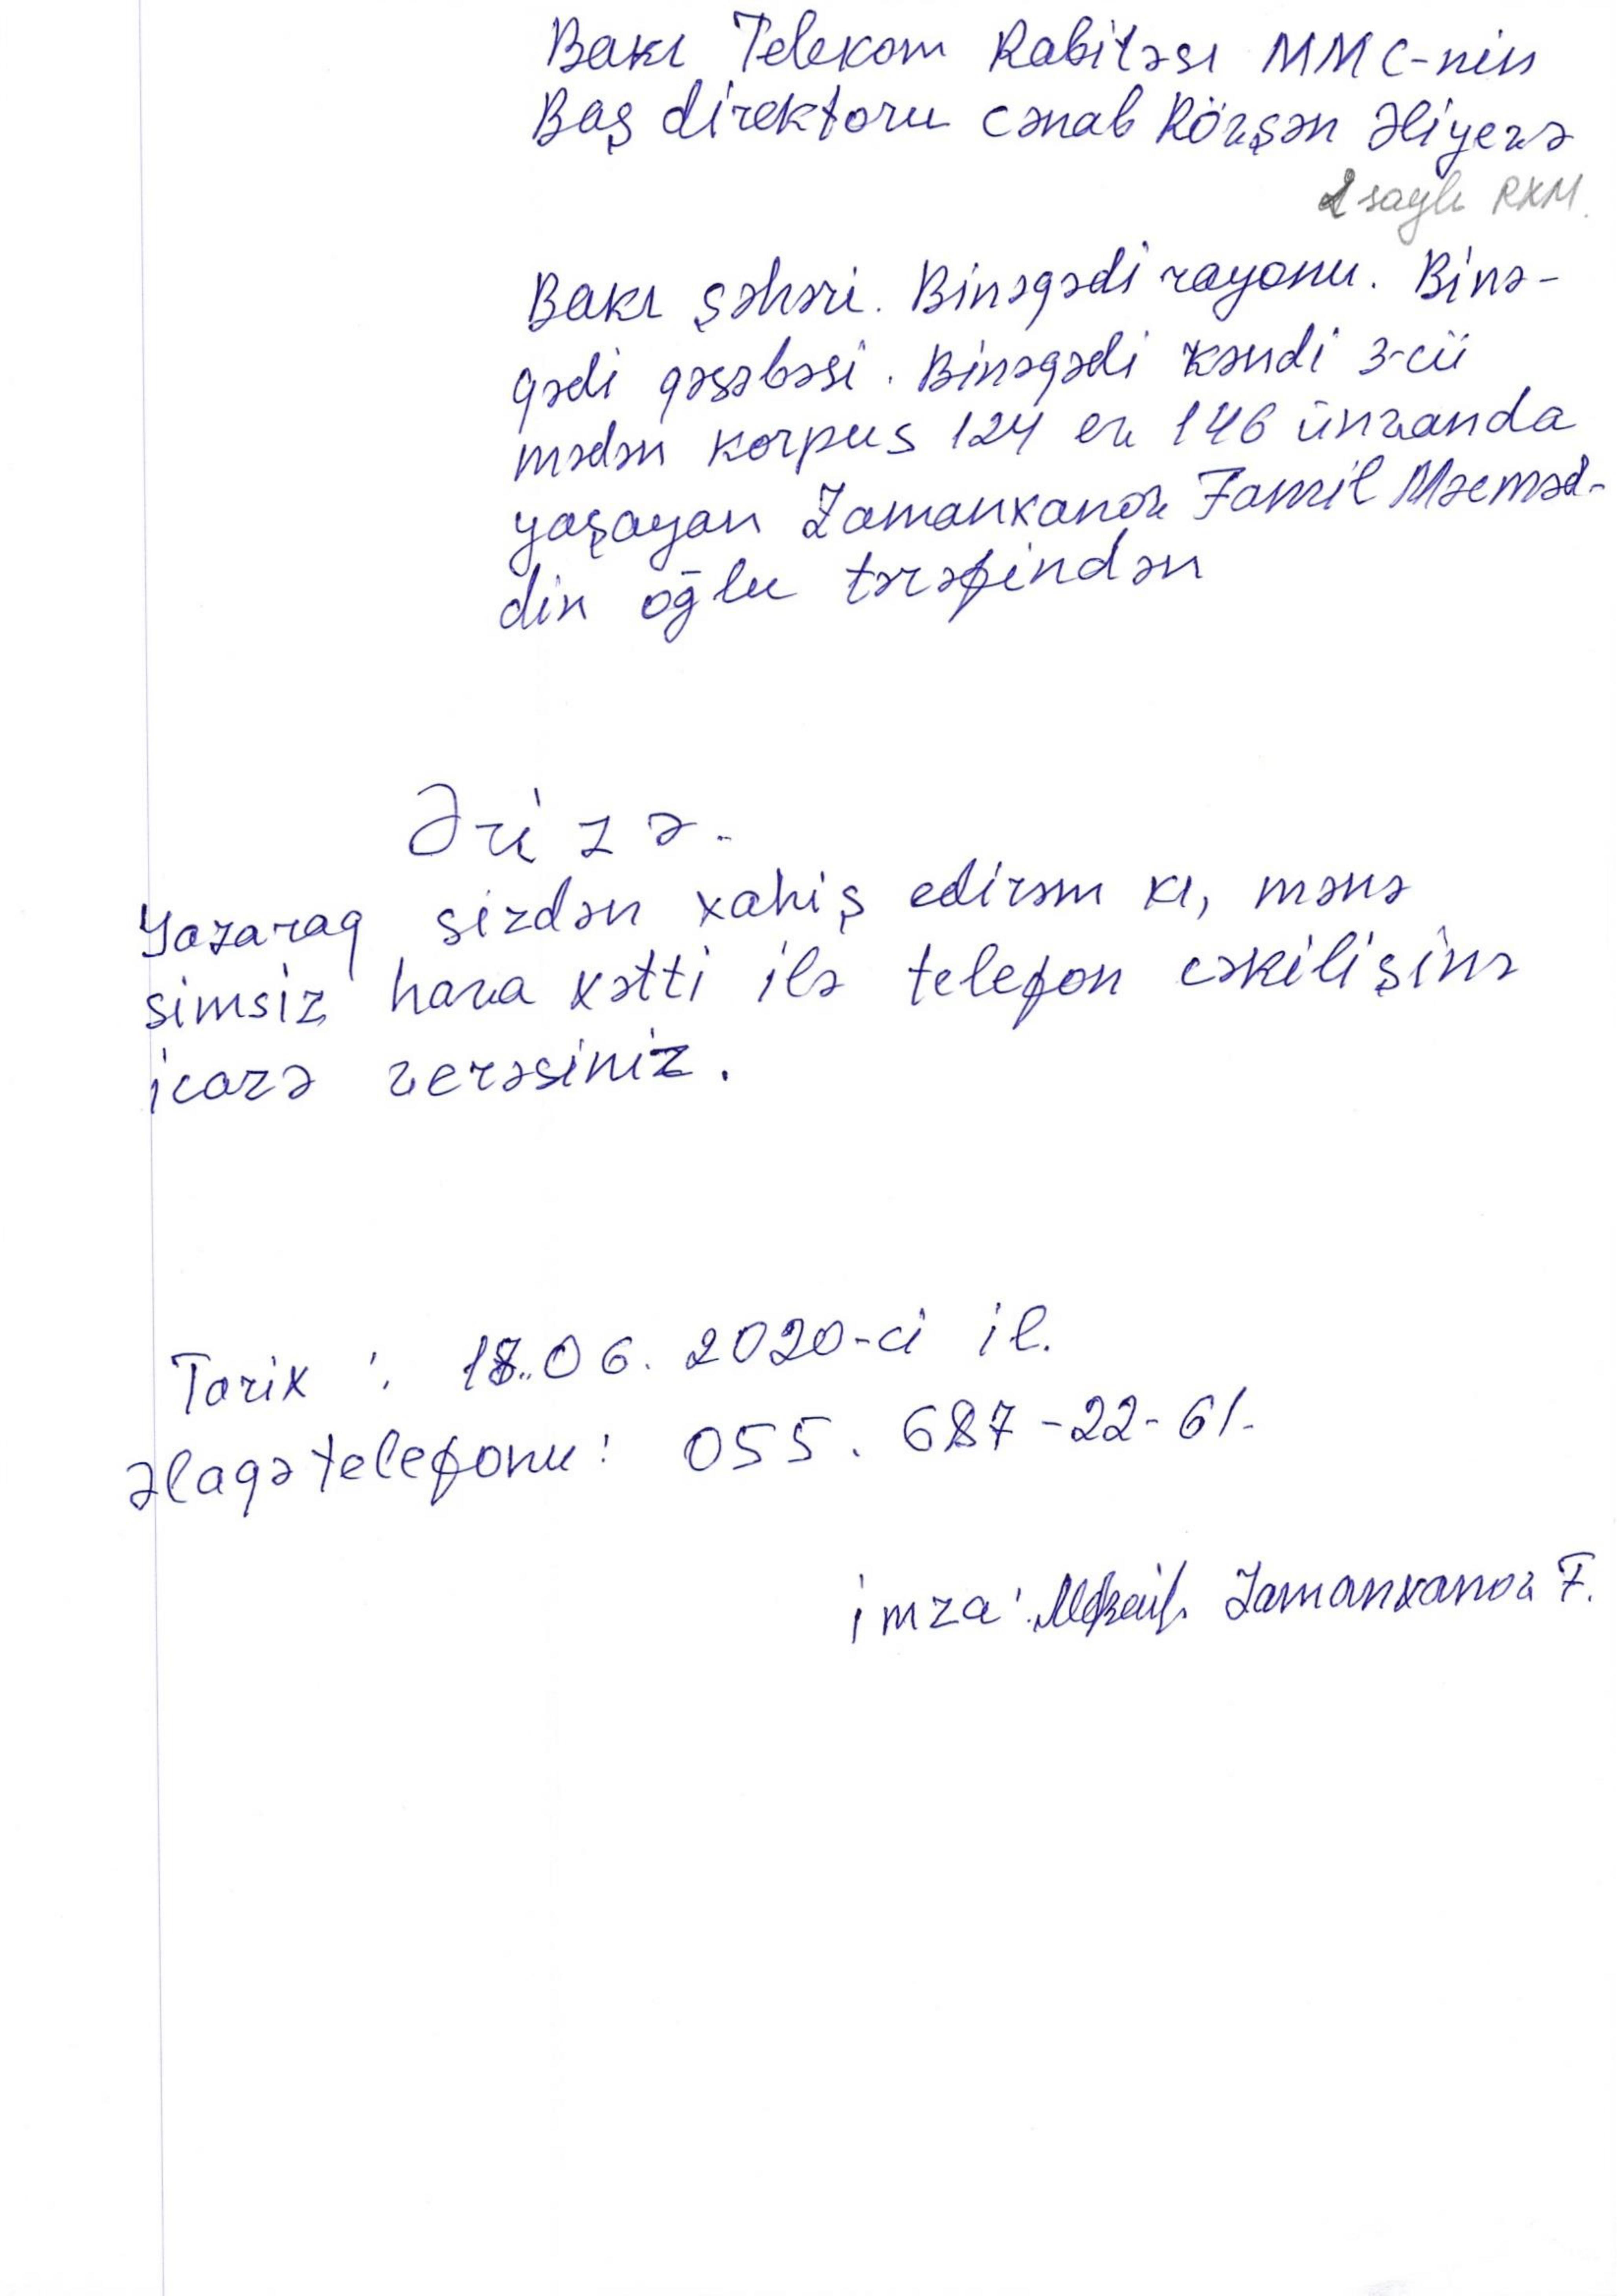 Bakı Telekom Rabitəsı MMC-nin
Baş direktoru cənab Rövşən Əliyevə
2 saylı RXM.
Bakı şəhəri. Binəqədi rayonu. Binə-
qədi qəsəbəsi. Binəqədi kəndi 3-cü
mədən korpus 124 ev 146 ünvanda
yaşayan Zamanxanov Famil Məcməd-
din oğlu tərəfindən
Ərizə.
Yazaraq sizdən xahiş edirəm kı, mənə
simsiz hava xətti ilə telefon cəkilişinə
icazə verəsiniz.
Tarix: 18.06.2020-ci il.
Əlaqə telefonu: 055. 687-22-61.
imza: Zamanxanov F.